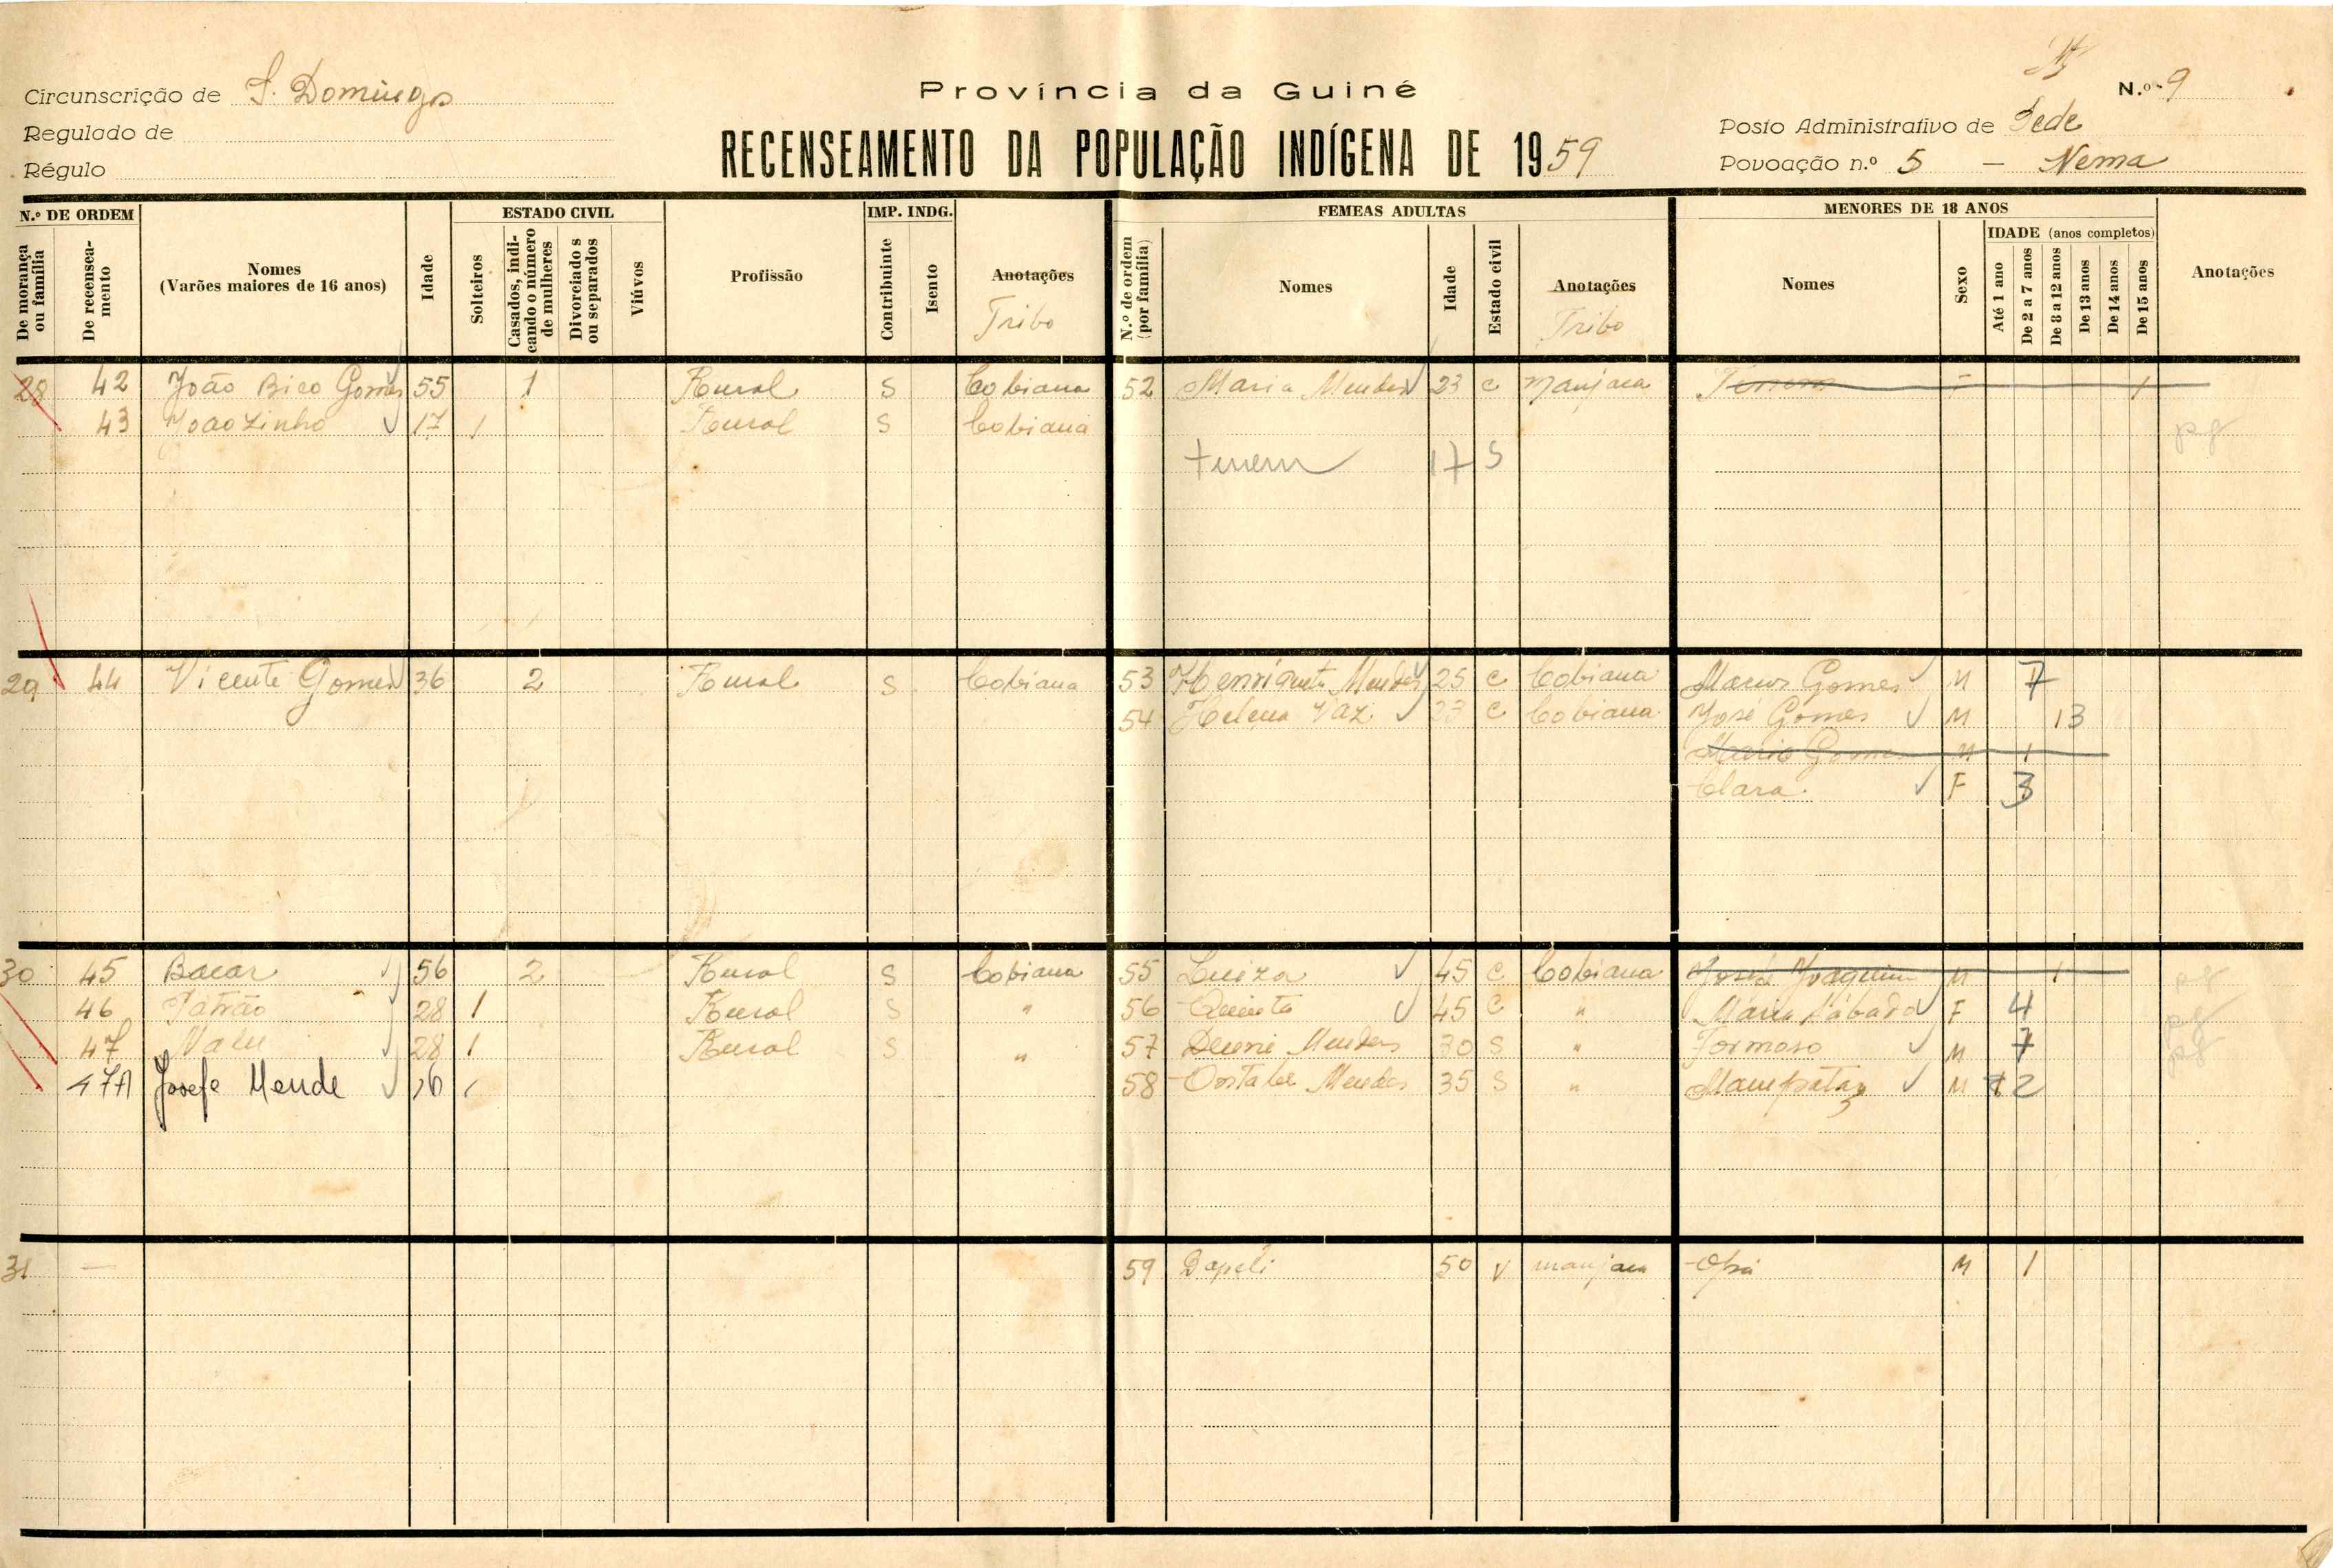 Província da Guiné
N.º 9
Circunscrição de S. Domingos
Regulado de
Régulo
RECENSEAMENTO DA POPULAÇÃO INDÍGENA DE 1959
Posto Administrativo de Sede
Povoação n.º 5 — Nema
N.º DE ORDEM ESTADO CIVIL IMP. INDG. FEMEAS ADULTAS MENORES DE 18 ANOS
De morança ou família
De recenseamento
Nomes
(Varões maiores de 16 anos)
Idade
Solteiros
Casados, indicando o número de mulheres
Divorciados ou separados
Viúvos
Profissão
Contribuinte
Isento
Anotações
Tribo
N.º de ordem (por família)
Nomes
Idade
Estado civil
Anotações
Tribo
Nomes
Sexo
IDADE (anos completos)
Até 1 ano
De 2 a 7 anos
De 8 a 12 anos
De 13 anos
De 14 anos
De 15 anos
Anotações
28 42 João Bico Gomes 55 1 Rural S Cobiana 52 Maria Mendes 23 c manjaca F 1
43 Joaozinho 17 1 Rural S Cobiana
17 S
29 44 Vicente Gomes 36 2 Rural S Cobiana 53 Henriqueta Mendes 25 c Cobiana Marcos Gomes M 7
54 Helena Vaz 23 c Cobiana José Gomes M 13
Mario Gomes M 1
Clara F 3
30 45 Bacar 56 2 Rural S Cobiana 55 Luiza 45 c Cobiana José Joaquim M 1
46 Patrão 28 1 Rural S " 56 Quinta 45 c " Maria Sábado F 4
47 Malu 28 1 Rural S " 57 Mendes 30 S " Formoso M 7
47A Josefe Mende 16 1 58 Mendes 35 S " Mampataz M 12
31 — 59 Dapeli 50 V manjaca M 1